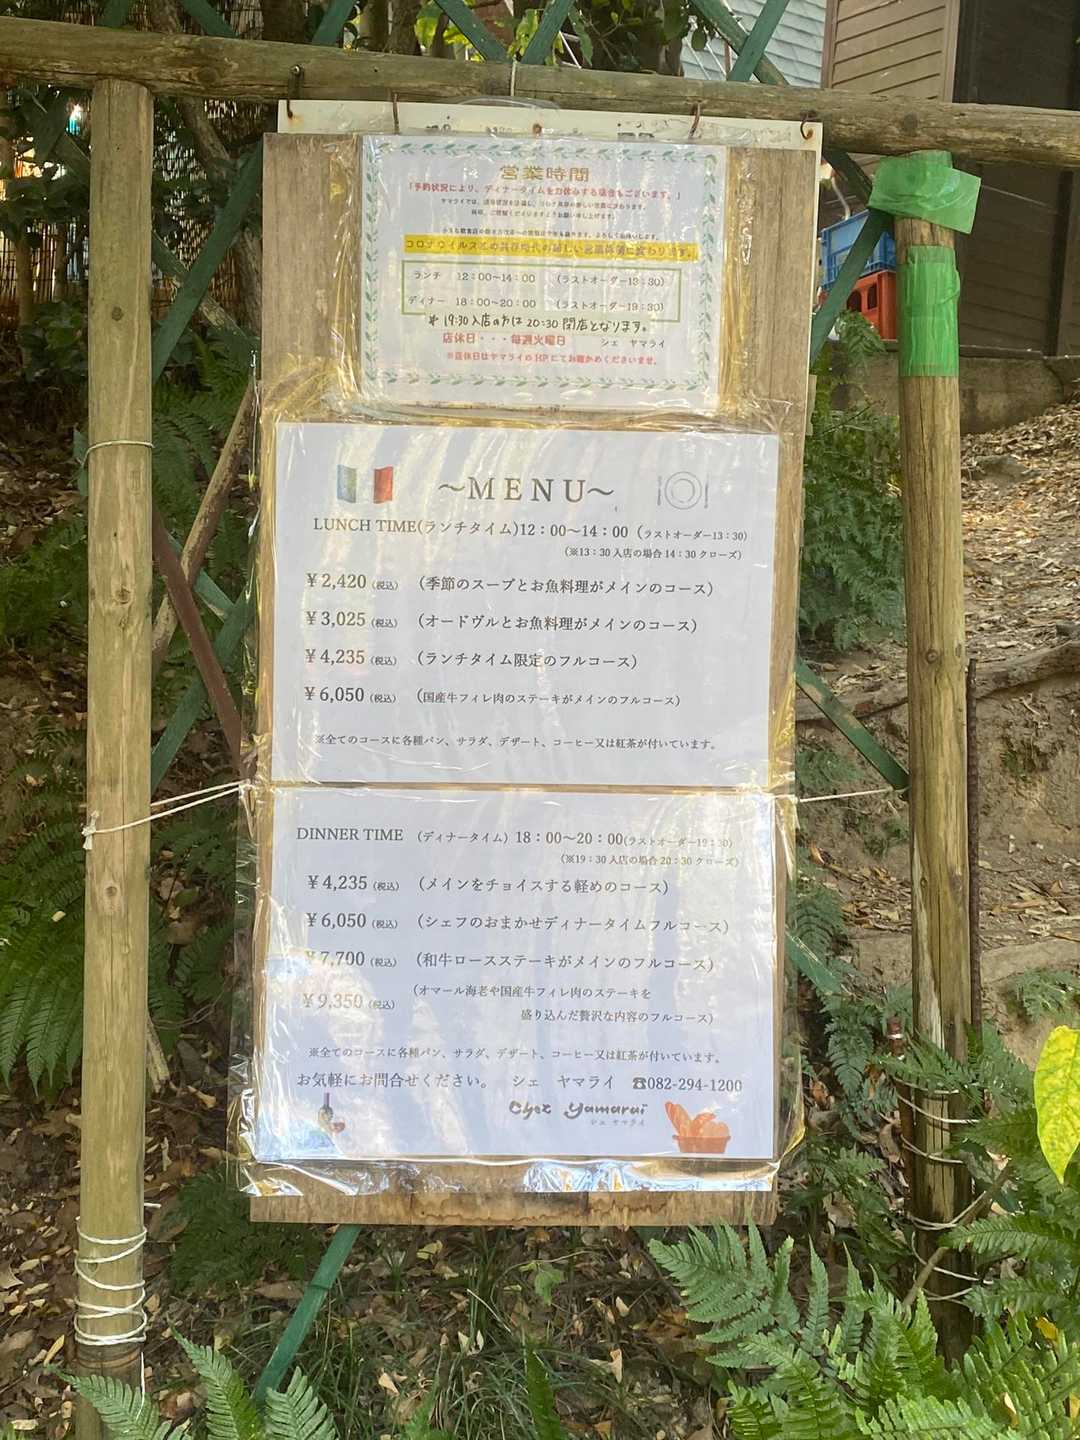 営業時間
「予約状況により、ディナータイムをお休みする場合もございます。」
コロナウイルスとの共存時代の新しい営業体制に変わります。
ランチ 12:00〜14:00 (ラストオーダー13:30)
ディナー 18:00〜20:00 (ラストオーダー19:30)
※19:30入店の方は20:30閉店となります。
店休日・・・毎週火曜日 シェ ヤマライ
※店休日はヤマライのHPにてお確かめくださいませ。
〜MENU〜
LUNCH TIME(ランチタイム)12:00〜14:00 (ラストオーダー13:30)
(※13:30入店の場合14:30クローズ)
¥2,420(税込) (季節のスープとお魚料理がメインのコース)
¥3,025(税込) (オードヴルとお魚料理がメインのコース)
¥4,235(税込) (ランチタイム限定のフルコース)
¥6,050(税込) (国産牛フィレ肉のステーキがメインのフルコース)
※全てのコースに各種パン、サラダ、デザート、コーヒー又は紅茶が付いています。
DINNER TIME (ディナータイム) 18:00〜20:00(ラストオーダー19:30)
(※19:30入店の場合20:30クローズ)
¥4,235(税込) (メインをチョイスする軽めのコース)
¥6,050(税込) (シェフのおまかせディナータイムフルコース)
¥7,700(税込) (和牛ロースステーキがメインのフルコース)
¥9,350(税込) (オマール海老や国産牛フィレ肉のステーキを
盛り込んだ贅沢な内容のフルコース)
※全てのコースに各種パン、サラダ、デザート、コーヒー又は紅茶が付いています。
お気軽にお問合せください。 シェ ヤマライ ☎082-294-1200
Chez Yamarai
シェ ヤマライ